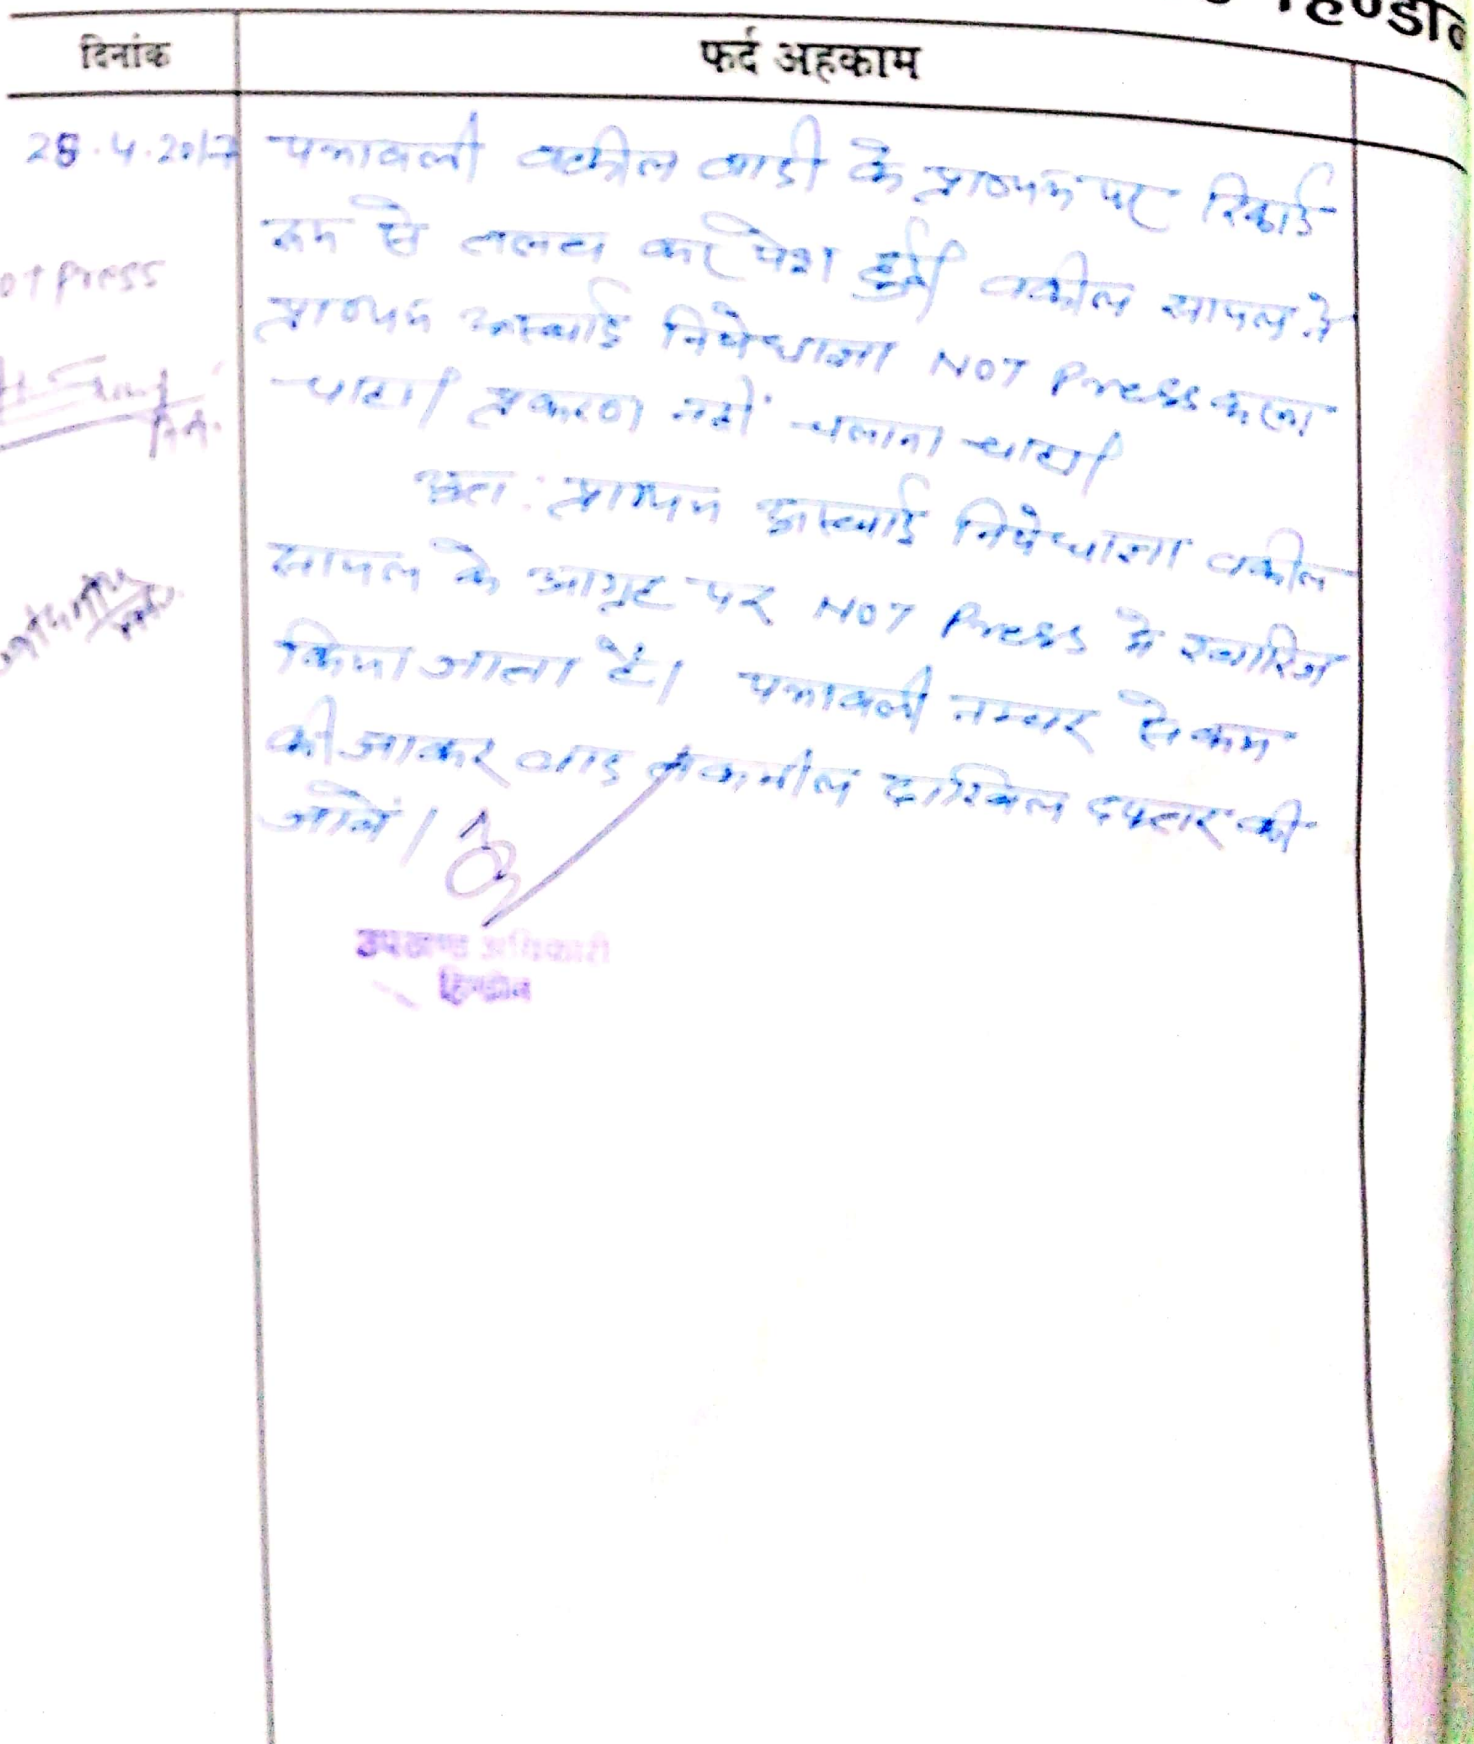 हिण्डौन
दिनांक
फर्द अहकाम
28.4.2017 पत्रावली वकील वादी के प्रा०पत्र पर रिकार्ड
रूम से तलब कर पेश हुई। वकील सायल ने
प्रा०पत्र अस्थाई निषेधाज्ञा NOT Press करना
चाहा। प्रकरण नहीं चलाना चाहा।
अतः प्रा०पत्र अस्थाई निषेधाज्ञा वकील
सायल के आग्रह पर NOT Press में खारिज
किया जाता है। पत्रावली नम्बर से कम
की जाकर बाद तकमील दाखिल दफ्तर की
जावें।
ot Press
उपखण्ड अधिकारी
हिण्डौन